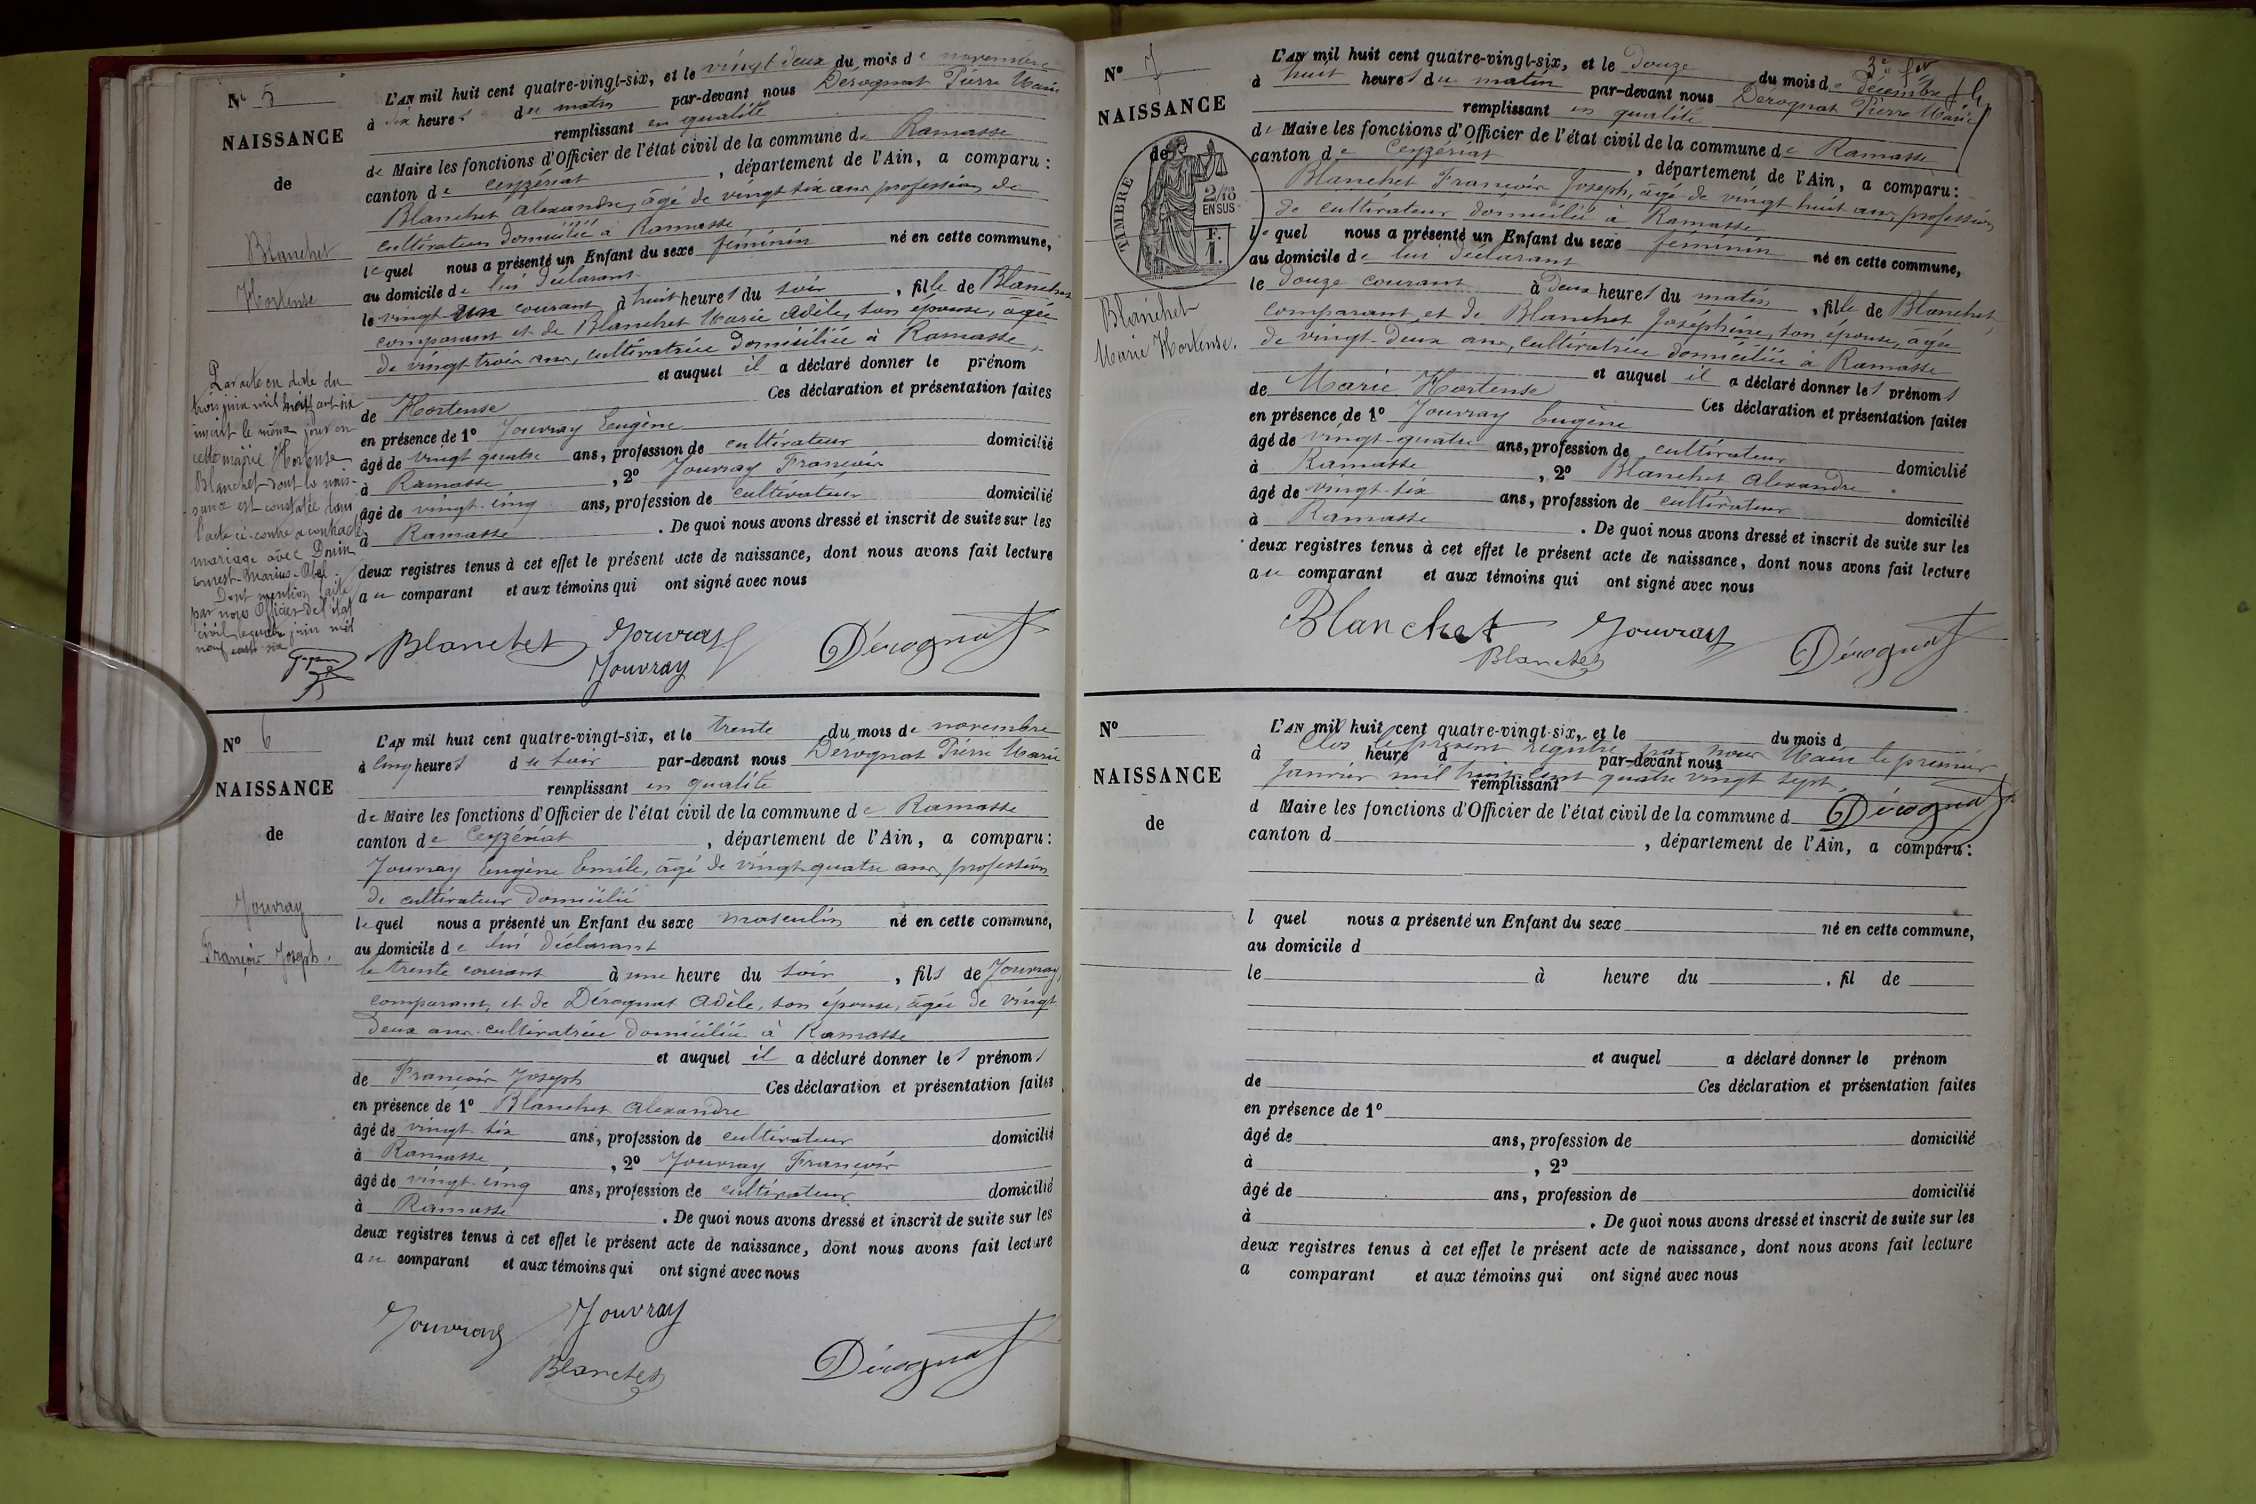 N° 5
NAISSANCE
de
Blanchet
Hortense
L'AN mil huit cent quatre-vingt-six, et le vingt deux du mois de novembre
à six heures du matin par-devant nous Dérognat Pierre Marie
remplissant en qualité
de Maire les fonctions d'Officier de l'état civil de la commune de Ramasse
canton de Ceyzériat, département de l'Ain, a comparu:
Blanchet Alexandre, âgé de vingt six ans profession de
cultivateur domicilié à Ramasse
lequel nous a présenté un Enfant du sexe féminin né en cette commune,
au domicile de lui déclarant
le vingt un courant à huit heures du soir, fille de Blanchet
comparant et de Blanchet Marie Adèle, son épouse, âgée
de vingt-trois ans, cultivatrice domiciliée à Ramasse,
et auquel il a déclaré donner le prénom
de Hortense Ces déclaration et présentation faites
en présence de 1° Jouvray Eugène
âgé de vingt quatre ans, profession de cultivateur domicilié
à Ramasse, 2° Jouvray François
âgé de vingt-cinq ans, profession de cultivateur domicilié
à Ramasse. De quoi nous avons dressé et inscrit de suite sur les
deux registres tenus à cet effet le présent acte de naissance, dont nous avons fait lecture
au comparant et aux témoins qui ont signé avec nous
Blanchet Jouvray Dérognat
Jouvray
Par acte en date du
trois juin mil neuf cent six
inscrit le même jour en
cette mairie Hortense
Blanchet dont la nais-
sance est constatée dans
l'acte ci-contre a contracté
mariage avec Donin
Ernest-Marius-Abel.
Dont mention faite
par nous Officier de l'état
civil le quatre juin mil
neuf cent six
N° 6
NAISSANCE
de
Jouvray
François Joseph.
L'AN mil huit cent quatre-vingt-six, et le trente du mois de novembre
à cinq heures du soir par-devant nous Dérognat Pierre Marie
remplissant en qualité
de Maire les fonctions d'Officier de l'état civil de la commune de Ramasse
canton de Ceyzériat, département de l'Ain, a comparu:
Jouvray Eugène Emile, âgé de vingt-quatre ans, profession
de cultivateur domicilié
lequel nous a présenté un Enfant du sexe masculin né en cette commune,
au domicile de lui déclarant
le trente courant à une heure du soir, fils de Jouvray,
comparant, et de Dérognat Adèle, son épouse, âgée de vingt
deux ans cultivatrice domiciliée à Ramasse
et auquel il a déclaré donner les prénoms
de François Joseph Ces déclaration et présentation faites
en présence de 1° Blanchet Alexandre
âgé de vingt-six ans, profession de cultivateur domicilié
à Ramasse, 2° Jouvray François
âgé de vingt-cinq ans, profession de cultivateur domicilié
à Ramasse. De quoi nous avons dressé et inscrit de suite sur les
deux registres tenus à cet effet le présent acte de naissance, dont nous avons fait lecture
au comparant et aux témoins qui ont signé avec nous
Jouvray Jouvray
Blanchet Dérognat
3e
N° 7
NAISSANCE
de
TIMBRE
2/10
EN SUS
F.
1.
Blanchet
Marie Hortense.
L'AN mil huit cent quatre-vingt-six, et le douze du mois de décembre
à huit heures du matin par-devant nous Dérognat Pierre Marie
remplissant en qualité
de Maire les fonctions d'Officier de l'état civil de la commune de Ramasse
canton de Ceyzériat, département de l'Ain, a comparu:
Blanchet François Joseph, âgé de vingt huit ans, profession
de cultivateur domicilié à Ramasse
lequel nous a présenté un Enfant du sexe féminin né en cette commune,
au domicile de lui déclarant
le douze courant à deux heures du matin, fille de Blanchet,
comparant, et de Blanchet Joséphine, son épouse, âgée
de vingt-deux ans, cultivatrice domiciliée à Ramasse
et auquel il a déclaré donner les prénoms
de Marie Hortense Ces déclaration et présentation faites
en présence de 1° Jouvray Eugène
âgé de vingt-quatre ans, profession de cultivateur domicilié
à Ramasse, 2° Blanchet Alexandre
âgé de vingt-six ans, profession de cultivateur domicilié
à Ramasse. De quoi nous avons dressé et inscrit de suite sur les
deux registres tenus à cet effet le présent acte de naissance, dont nous avons fait lecture
au comparant et aux témoins qui ont signé avec nous
Blanchet Jouvray Dérognat
Blanchet
N°
NAISSANCE
de
L'AN mil huit cent quatre-vingt-six, et le du mois d
Clos le présent registre par nous Maire le premier
à heure d par-devant nous
Janvier mil huit cent quatre vingt sept.
remplissant
d Maire les fonctions d'Officier de l'état civil de la commune d Dérognat
canton d , département de l'Ain, a comparu:
l quel nous a présenté un Enfant du sexe né en cette commune,
au domicile d
le à heure du , fil de
et auquel a déclaré donner le prénom
de Ces déclaration et présentation faites
en présence de 1°
âgé de ans, profession de domicilié
à , 2°
âgé de ans, profession de domicilié
à . De quoi nous avons dressé et inscrit de suite sur les
deux registres tenus à cet effet le présent acte de naissance, dont nous avons fait lecture
a comparant et aux témoins qui ont signé avec nous